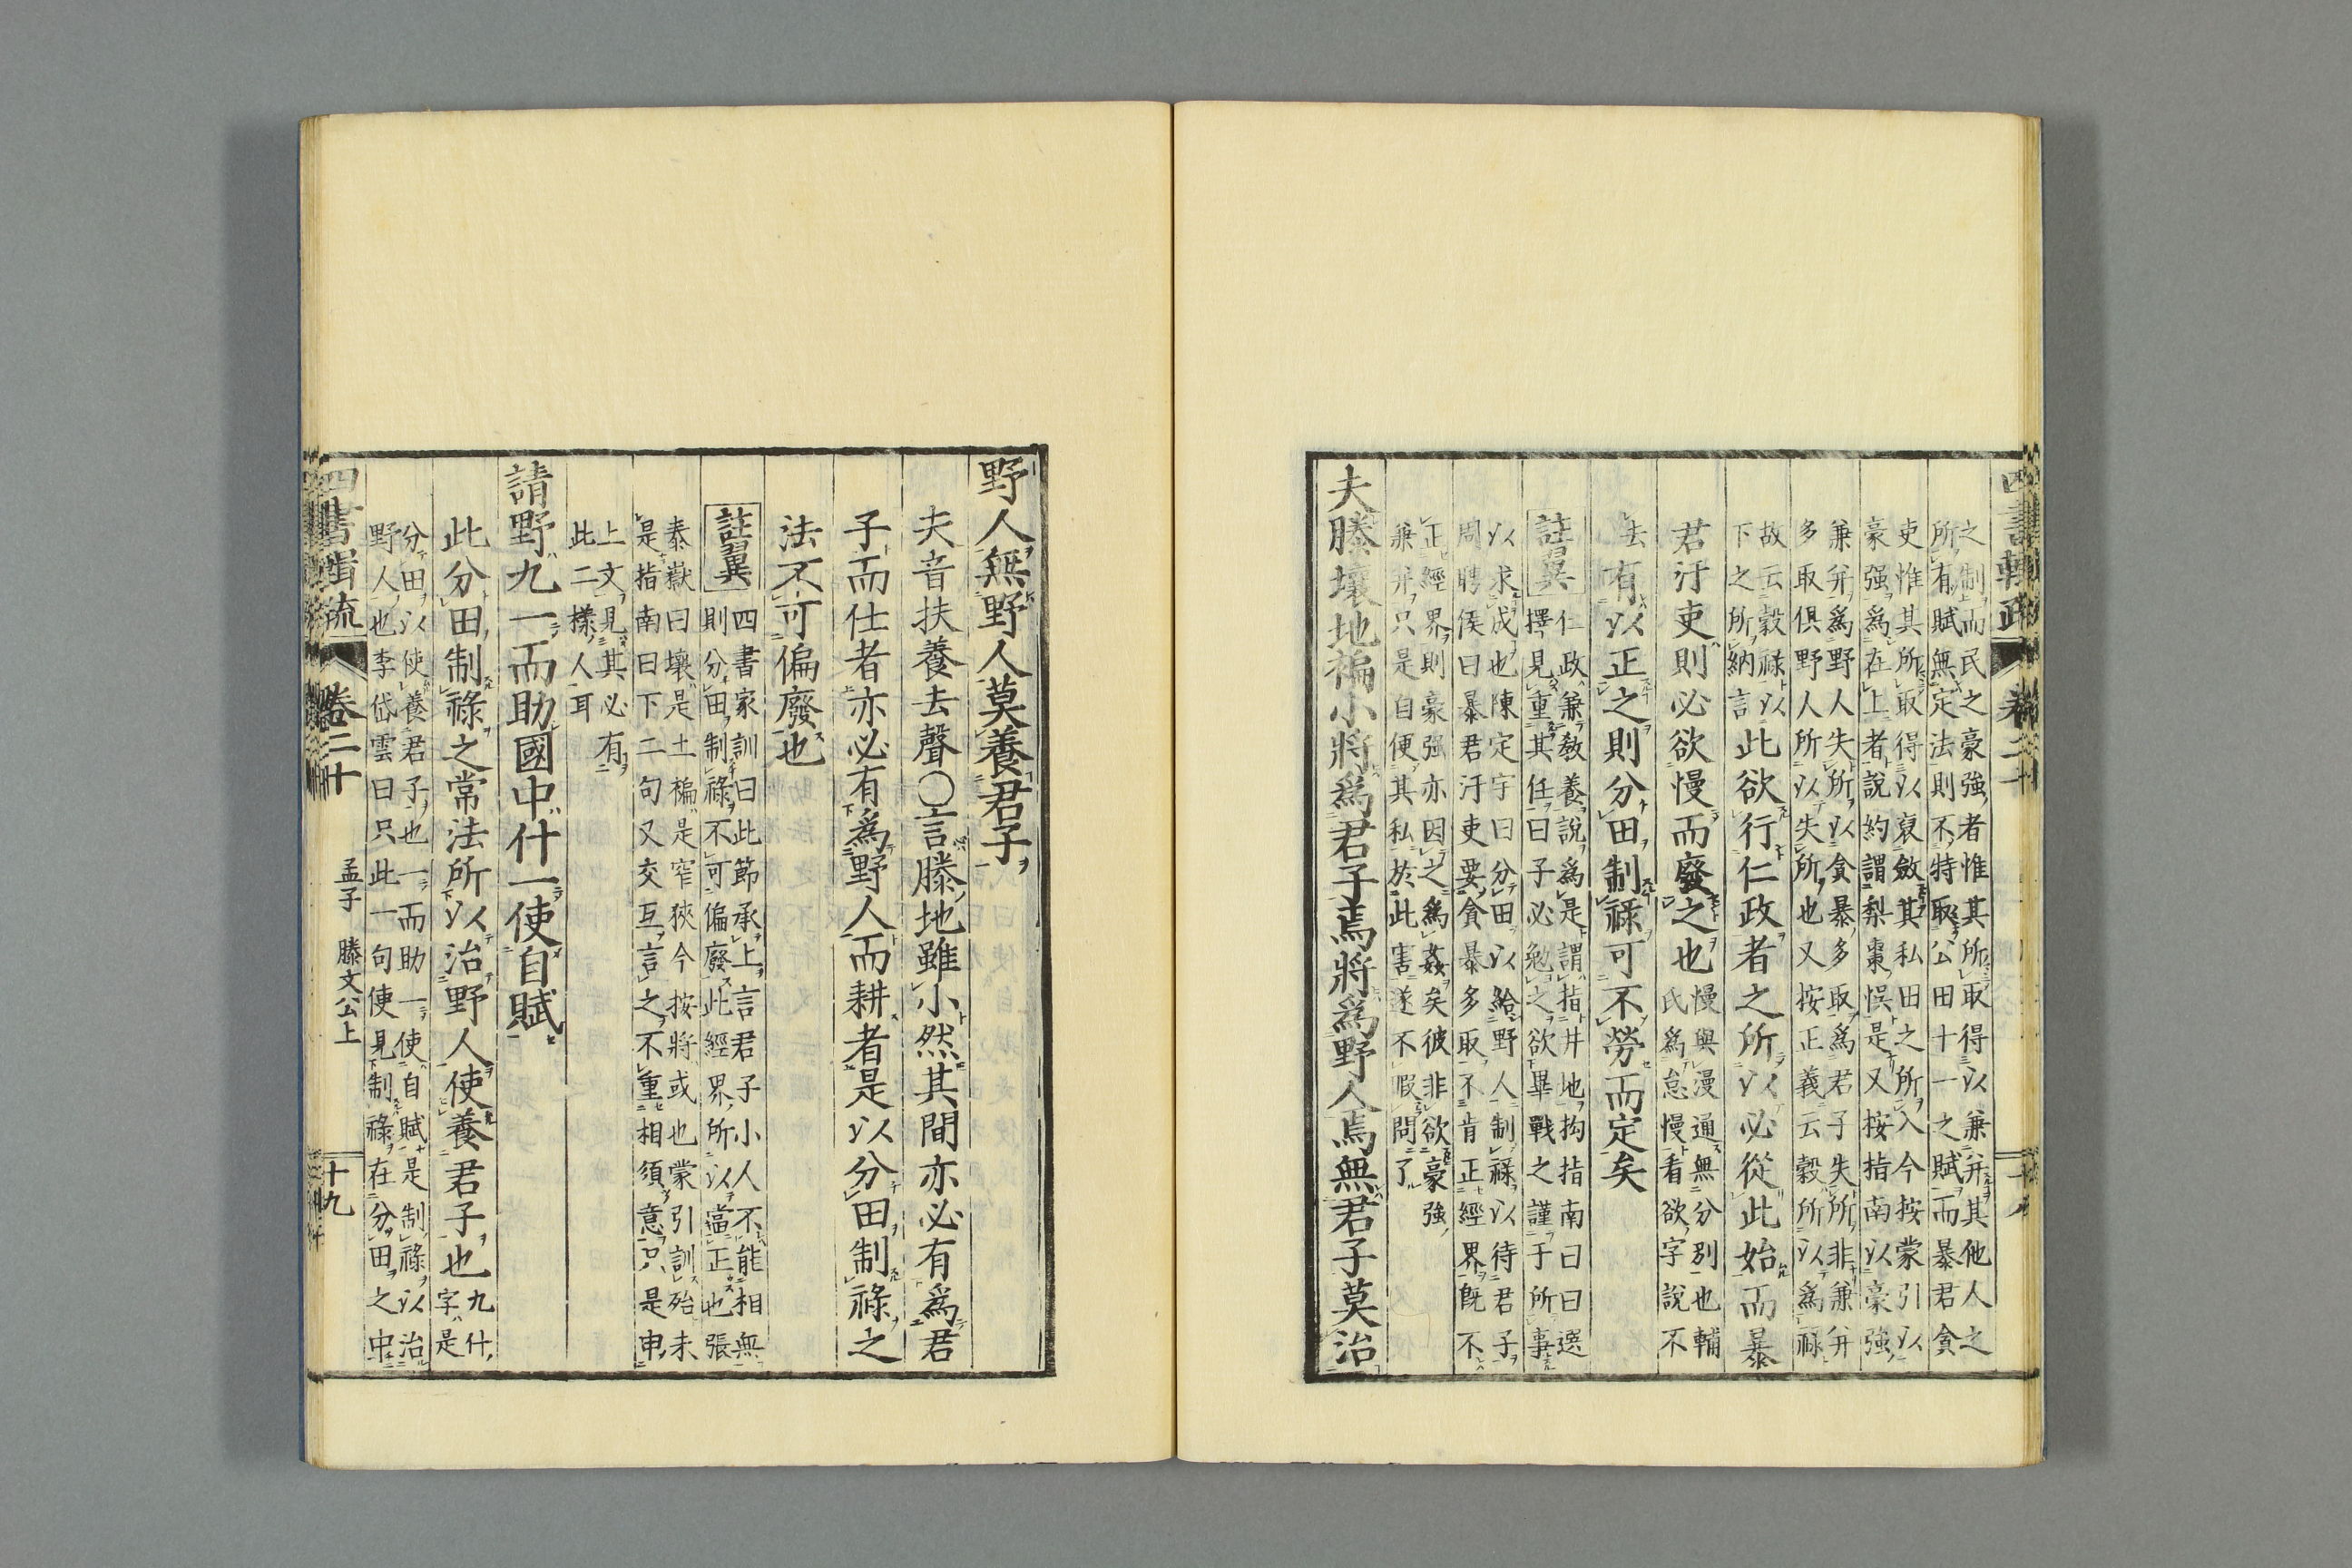 之制而民之豪強者惟其所取得以兼并其他人之
所有賦無定法則不特取公田十一之賦而暴君貪
吏惟其所取得以裒斂其私田之所入今按蒙引以
豪强爲在上者說約謂梨棗悞是又按指南以豪强
兼并爲野人失所以貪暴多取爲君子失所非兼并
多取俱野人所以失所也又按正義云穀所以爲祿
故云穀祿以
下之所納言
此欲行仁政者之所以必從此始而暴
君汙吏則必欲慢而廢之也
慢與漫通無分別也輔
氏爲怠慢看欲字說不
去
有以正之則分田制祿可不勞而定矣
註翼
仁政兼教養說爲是謂指井地抅指南曰曰選
擇見重其任曰子必勉之欲畢戰之謹于所事
以求成也陳定宇曰分田以給野人制祿以待君子
周聘侯曰暴君汙吏要貪暴多取不肯正經界旣不
正經界則豪强亦因之爲姦矣彼非欲豪强
兼并只是自便其私於此害遂不暇問了
夫滕壤地褊小將爲君子焉將爲野人焉無君子莫治
野人無野人莫養君子
夫音扶養去聲○言滕地雖小然其間亦必有爲君
子而仕者亦必有爲野人而耕者是以分田制祿之
法不可偏廢也
註翼
四書家訓曰此節承上言君子小人不能相無
則分田制祿不可偏廢此經界所以當正也張
泰嶽曰壤是土褊是窄狹今按將或也蒙引訓殆未
是指南曰下二句又交互言之不重相須意只是申
上文見其必有
此二樣人耳
請野九一而助國中什一使自賦
此分田制祿之常法所以治野人使養君子也
九什
字是
分田以使養君子也一而助一使自賦是制祿以治
野人也李岱雲曰只此一句便見制祿在分田之中
卷二十
孟子 滕文公上
十九